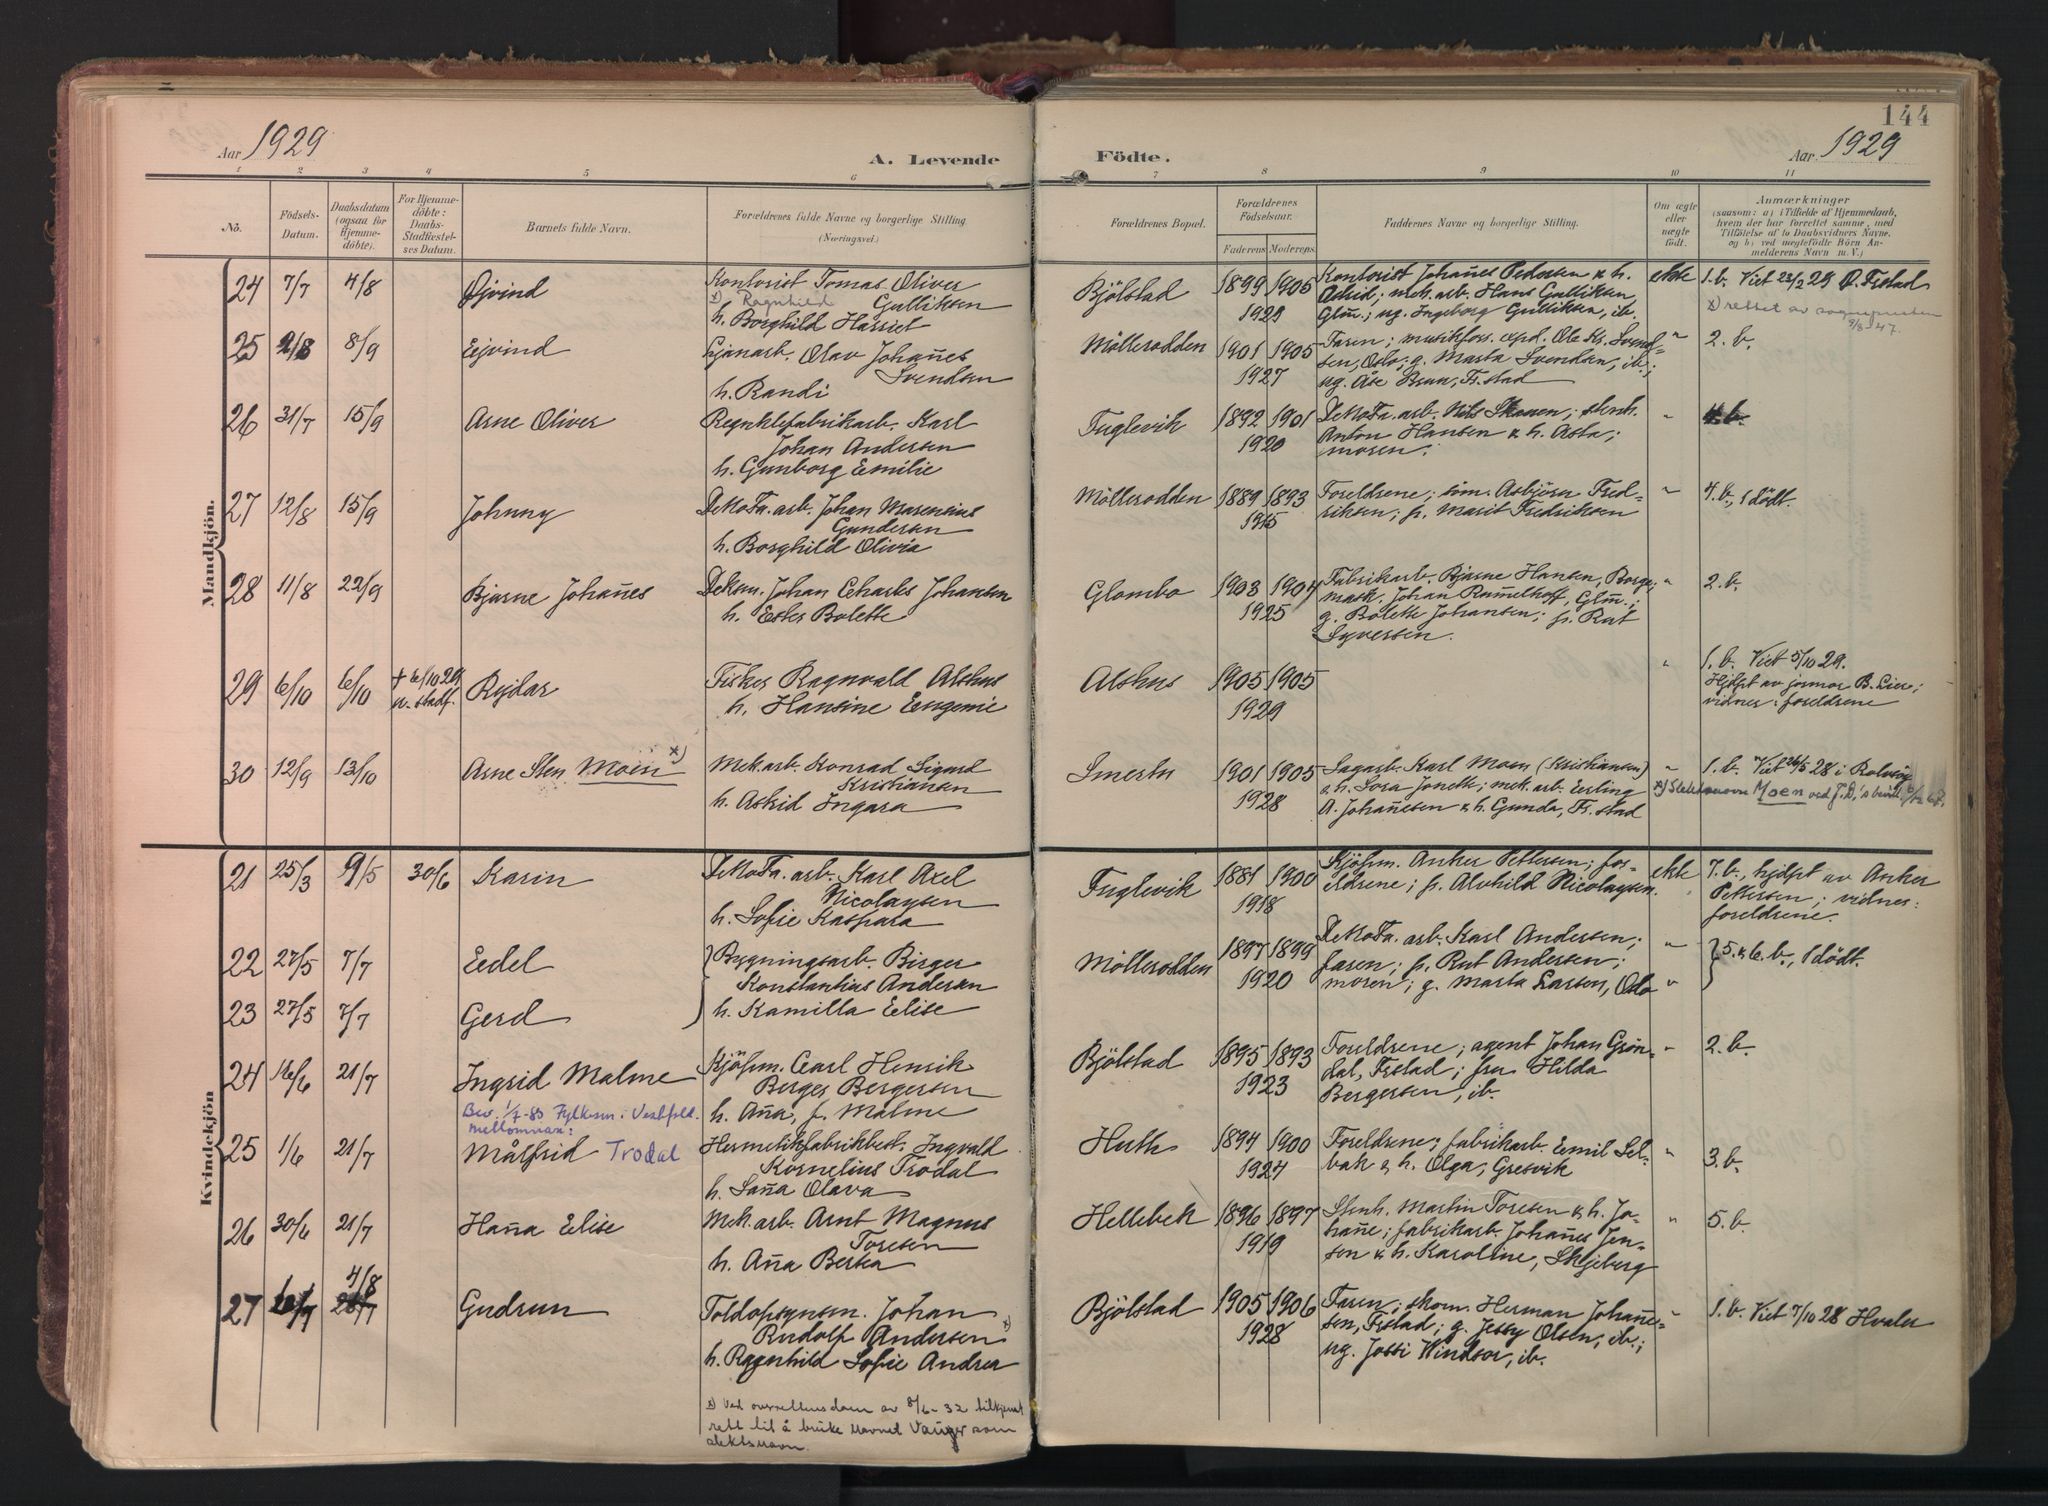 144
Aar 1929
A. Levende
Födte.
Aar 1929
1 2 3 4 5 6 7 8 9 10 11
No.
Födsels-
Datum.
Daabsdatum
(ogsaa for
Hjemme-
döbte).
For Hjemme-
döbte:
Daabs-
Stadfæstel-
ses Datum.
Barnets fulde Navn.
Forældrenes fulde Navne og borgerlige Stilling.
(Næringsvei.)
Forældrenes Bopæl.
Forældrenes
Födselsaar.
Faderens. Moderens.
Faddernes Navne og borgerlige Stilling.
Om ægte
eller
uægte
født.
Anmærkninger
(saasom: a) i Tilfælde af Hjemmedaab,
hvem der har forrettet samme, med
Tilföielse af to Daabsvidners Navne,
og b) ved uægtefödte Börn An-
melderens Navn m. V.)
Mandkjön.
24 7/7 4/8 Øjvind
Kontorist Tomas Oliver
x) Ragnhild Gulliksen
h. Borghild Harriet
Bjölstad 1899 1905
1929
Kontorist Johan̄es Pedersen & h.
Astrid; mek. arb. Hans Gulliksen,
Glm.; ug. Ingeborg Gulliksen, ib.
ekte
1. b. Viet 23/2 29 Fr.stad
x) rettet av sognepresten
9/8-47.
25 2/8 8/9 Ejvind
Olav Johan̄es
Svendsen
h. Randi
Möllerodden 1901 1905
1927
Faren; musikforr. exp. Ole Kr. Svend-
sen, Oslo; g. Marta Svendsen, ib.;
ug. Åse Brun, Fr.stad
" 2. b.
26 31/7 15/9 Arne Oliver
Karl
Johan Andersen
h. Gunborg Emilie
Fuglevik 1892 1901
1920
DeNoFa. arb. Nils Skauen; stenh.
Anton Hansen & h. Asta;
moren.
" 4. b.
27 12/8 15/9 Johnny
DeNoFa. arb. Johan Marensius
Gundersen
h. Borghild Olivia
Möllerodden 1889 1893
1915
Foreldrene; sjm. Asbjörn Fred-
riksen; p. Marit Fredriksen
" 4. b., 1 dödt.
28 11/8 22/9 Bjarne Johan̄es
Deksm. Johan Charles Johansen
h. Ester Bolette
Glombo 1903 1904
1925
Fabrikarb. Bjarne Hansen, Borge;
mask. Johan Ramelhoff, Glm.;
g. Bolette Johansen; p. Rut
Syversen.
" 2. b.
29 6/10 6/10 + 6/10 29
u. stadf.
Rejdar
Fisker Ragnvald Alshus
h. Hansine Eugenie
Alshus 1905 1905
1929
" 1. b. Viet 5/10 29.
Hjdpt av jormor B. Lier;
vidner: foreldrene
30 12/9 13/10 Arne Sten Moen x)
Mek. arb. Konrad Sigurd
Kristiansen
h. Astrid Ingara
Smertu 1901 1905
1928
Sagarb. Karl Moen (Kristiansen)
& h. Lora Jonette; mek. arb. Erling
A. Johan̄esen & h. Gunda, Fr.stad
" 1. b. Viet 26/5 28 i Rolvsöy
x) Slektsnavn Moen ved J.D.'s bevill.
Kvindekjön
21 25/3 9/5 30/6 Karin
DeNoFa. arb. Karl Axel
Nicolaysen
h. Sofie Kaspara
Fuglevik 1881 1900
1918
Kjöpm. Anker Pettersen; for-
eldrene; p. Alvhild Nicolaysen.
ekte
7. b., hjdpt av Anker
Pettersen; vidner:
foreldrene.
22 27/5 7/7 Edel
Bygningsarb. Birger
Konstantius Andersen
h. Kamilla Elise
Möllerodden 1897 1899
1920
DeNoFa. arb. Karl Andersen;
faren; p. Rut Andersen;
moren; g. Marta Larsen, Oslo
" 5. & 6. b., 1 dödt.
23 27/5 7/7 Gerd
"
24 16/6 21/7 Ingrid Malme
Kjöpm. Carl Henrik
Berger Bergersen
h. An̄a, f. Malme
Bjölstad 1895 1893
1923
Foreldrene; agent Johan Grön-
dal, Fr.stad; fru Hilda
Bergersen, ib.
" 2. b.
Bev. 1/7-83 Fylkesm. i Vestfold.
mellomnavn:
25 1/6 21/7 Målfrid Trodal
Hermetikfabrikbest. Ingvald
Kornelius Trodal
h. San̄a Olava
Huth 1894 1900
1924
Foreldrene; fabrikarb. Emil Sel-
bak & h. Olga, Gresvik
" 3. b.
26 30/6 21/7 Han̄a Elise
Mek. arb. Arnt Magnus
Toresen
h. An̄a Berta
Hellebek 1896 1897
1919
Stenh. Martin Toresen & h. Jo-
han̄e; fabrikarb. Johan̄es Jen-
sen & h. Karoline, Skjeberg
" 5. b.
27 4/8
Gudrun
Toldopsynsm. Johan
Rudolf Andersen x)
h. Ragnhild Sofie Andrea
Bjölstad 1905 1906
1928
Faren; skom. Herman Johan̄e-
sen, Fr.stad; g. Jessy Olsen, ib.;
ug. Jossi Windsor, ib.
" 1. b. Viet 7/10 28 Hvaler
x) Ved overrettensdom av 8/6-32 tilkjennt
rett til å bruke navnet Vauger som
slektsnavn.